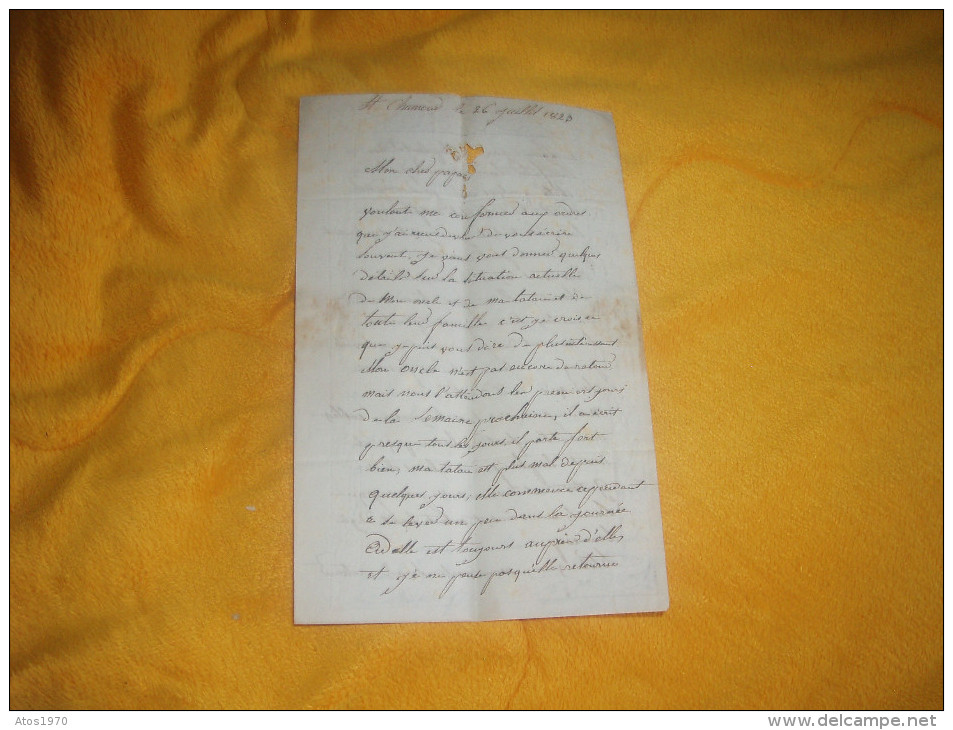 St Chamond le 26 juillet 1823
Mon cher papa
voulant me conformer aux ordres
que j'ai reçus de vous écrire
souvent, je vais vous donner quelques
détails sur la situation actuelle
de Mon oncle et de ma tatan et de
toute leur famille c'est je crois ce
que je puis vous dire de plus
Mon oncle n'est pas encore de retour
mais nous l'attendons les premiers jours
de la semaine prochaine, il écrit
presque tous les jours, il porte fort
bien, ma tatan est plus mal depuis
quelques jours, elle commence cependant
a se lever un peu dans la journée
est toujours auprès d'elle,
et je ne pense pas qu'elle retourne
Atos1970
delcampe.net